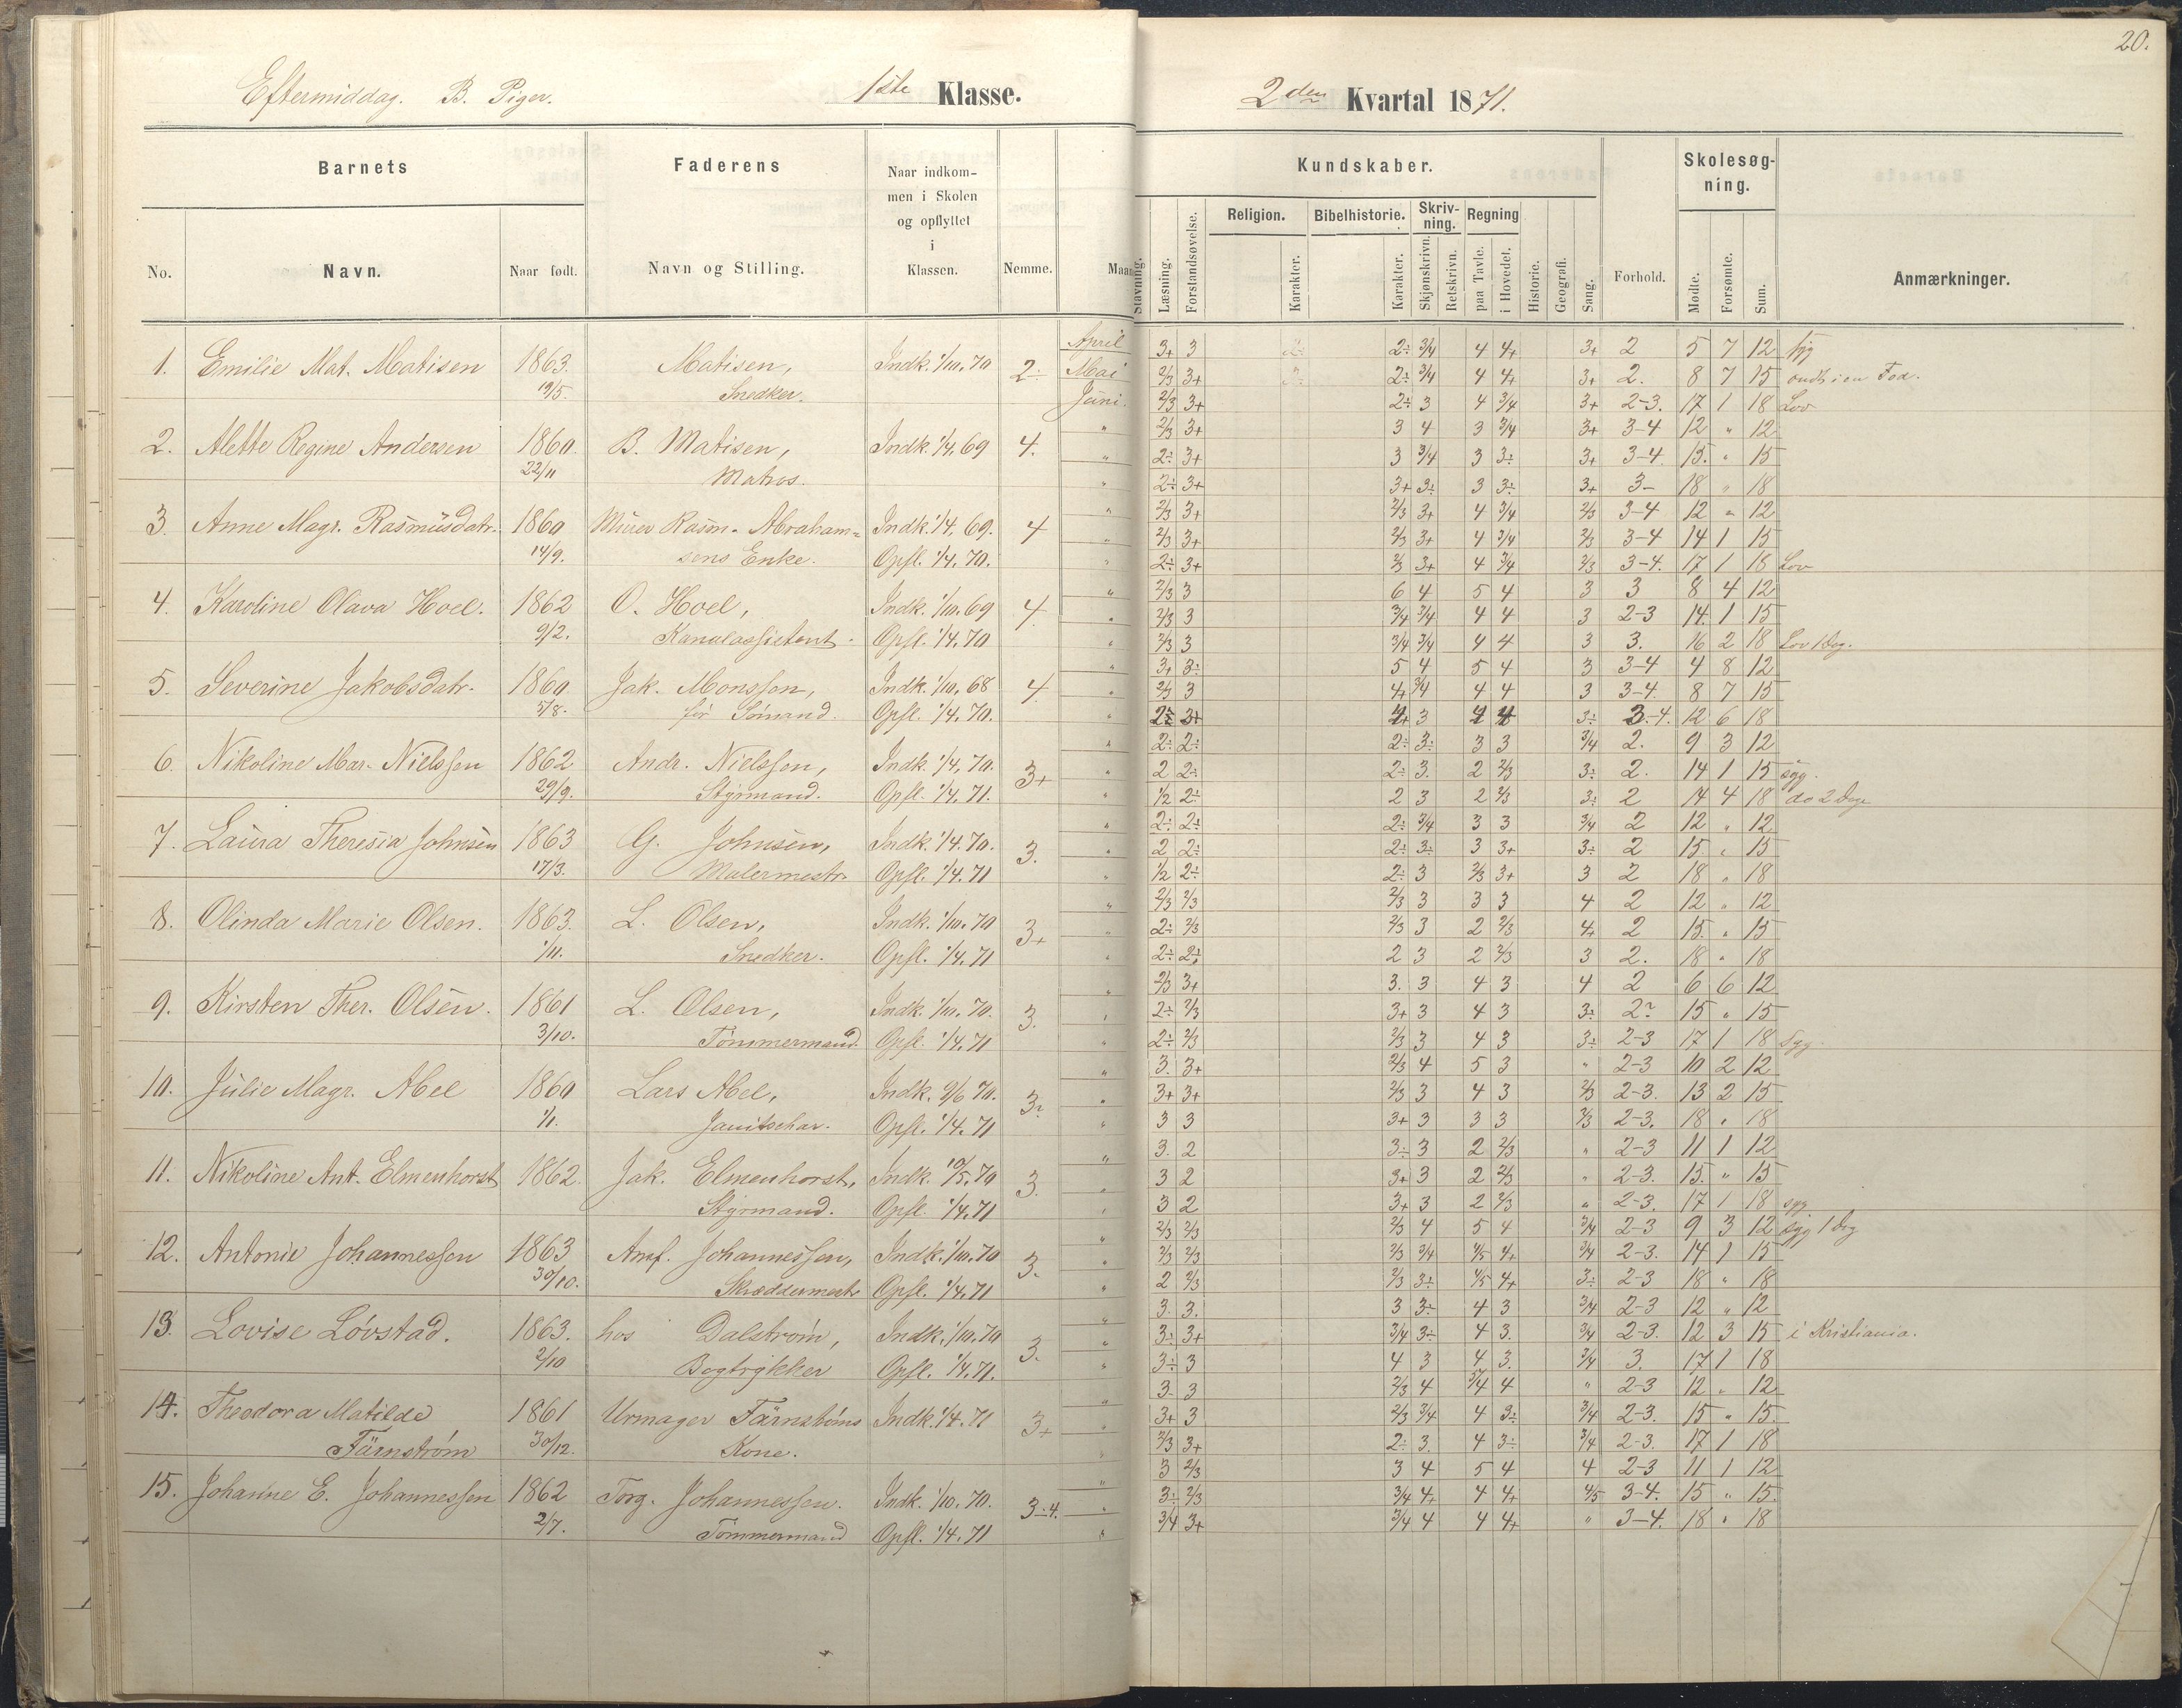 20.
Eftermiddag. B. Piger. 1ste Klasse. 2den Kvartal 1871.
Barnets Faderens Naar indkom- Kundskaber. Skolesøg-
men i Skolen ning.
og opflyttet Religion. Bibelhistorie. Skriv- Regning
i ning.
No. Navn. Naar født. Navn og Stilling. Klassen. Nemme. Maan Stavning. Læsning. Forstandsøvelse. Karakter. Karakter. Skjønskrivn. Retskrivn. paa Tavle. i Hovedet. Historie. Geografi. Sang. Forhold. Mødte. Forsømte. Sum. Anmærkninger.
April 3+ 3 2÷ 2÷ 3/4 4 4+ 3+ 2 5 7 12 syg
1. Emilie Mat. Matisen 1863. Matisen, Indk. 1/10. 70 2÷ Mai 2/3 3+ 2÷ 3/4 4 4+ 3+ 2. 8 7 15 ondt i en Fod.
19/5. Snedker. Juni. 2/3 3+ 2÷ 3 4 3/4 3+ 2-3. 17 1 18 Lov
" 2/3 3+ 3 4 3 3/4 3+ 3-4 12 " 12
2. Alette Regine Andersen 1860. B. Matisen, Indk. 1/4. 69 4. " 2÷ 3+ 3 3/4 3 3÷ 3+ 3-4 15. " 15
22/11 Matros. " 2÷ 3+ 3+ 3÷ 3 3÷ 3+ 3- 18 " 18
" 2/3 3+ 2/3 3+ 4 3/4 2/3 3-4 12 " 12
3. Anne Magr. Rasmusdatr. 1860 Murer Rasm. Abraham= Indk. 1/4. 69. 4 " 2/3 3+ 2/3 3+ 4 3/4 2/3 3-4 14 1 15
14/9. sens Enke. Opfl. 1/4. 70. " 2÷ 3+ 2/3 3+ 4 3/4 2/3 3-4. 17 1 18 Lov
" 2/3 3 6 4 5 4 3 3 8 4 12
4. Karoline Olava Hoel. 1862 O. Hoel, Indk. 1/10. 69 4. " 2/3 3 3/4 3/4 4 4 3 2-3 14. 1 15
9/2. Kanalassistent. Opfl. 1/4. 70 " 2/3 3 3/4 3/4 4 4 3 3. 16 2 18 Lov 1 Dag.
" 3+ 3÷ 5 4 5 4 3 3-4 4 8 12
5. Severine Jakobsdatr. 1860 Jak. Monssen, Indk. 1/10. 68 4. " 2/3 3 4+ 3/4 4 4 3 3-4. 8 7 15
5/8. før Sømand. Opfl. 1/4. 70. " 2÷ 3+ 4+ 3 4 4 3÷ 3-4. 12 6 18
" 2÷ 2÷ 2÷ 3÷ 3 3 3/4 2. 9 3 12
6. Nikoline Mar. Nielssen 1862 Andr. Nielssen, Indk. 1/4. 70. 3+ " 2 2÷ 2÷ 3. 2 2/3 3÷ 2. 14 1 15 syg.
29/9. Styrmand. Opfl. 1/4. 71. " 1/2 2÷ 2 3 2 2/3 3÷ 2 14 4 18 do 2 Dage
" 2÷ 2÷ 2÷ 3/4 3 3 3/4 2 12 " 12
7. Laura Theresia Johnsen 1863 G. Johnsen, Indk. 1/4. 70. 3. " 2 2÷ 2÷ 3÷ 3 3+ 3÷ 2 15. " 15
17/3. Malermestr. Opfl. 1/4. 71 " 1/2 2÷ 2÷ 3 2/3 3+ 3 2 18 " 18
" 2/3 2/3 2/3 3 3 3 4 2 12 " 12
8. Olinda Marie Olsen. 1863. L. Olsen, Indk. 1/10. 70 3+ " 2÷ 2/3 2/3 3 2 2/3 4+ 2 15. " 15
1/11. Snedker. Opfl. 1/4. 71 " 2÷ 2÷ 2 3 2 2/3 3 2. 18 " 18
" 2/3 3+ 3. 3 4 3 4 2 6 6 12
9. Kirsten Ther. Olsen. 1861 L. Olsen, Indk. 1/10. 70. 3. " 2÷ 2/3 3+ 3 4 3 3÷ 2÷ 15 " 15
3/10. Tømmermand. Opfl. 1/4. 71 " 2÷ 2/3 2/3 3 4 3 3÷ 2-3 17 1 18 Syg.
" 3. 3+ 2/3 4 5 3 " 2-3 10 2 12
10. Julie Magr. Abel 1860 Lars Abel, Indk. 9/6 70. 3÷ " 3+ 3+ 2/3 3 4 3 2/3 2-3. 13 2 15
1/11. Janitschar. Opfl. 1/4. 71 " 3 3 3+ 3 3 3 2/3 2-3. 18 " 18
" 3. 2 3÷ 3 2 2/3 " 2-3 11 1 12
11. Nikoline Ant. Elmenhorst 1862. Jak. Elmenhorst, Indk. 10/5. 70 3. " 3 2 3+ 3 2 2/3 " 2-3. 15. " 15
Styrmand. Opfl. 1/4. 71 " 3 2 3+ 3 2 2/3 " 2-3. 17 1 18 syg
" 2/3 2/3 2/3 4 5 4 3/4 2-3 9 3 12 syg 1 Dag
12. Antonie Johannessen 1863 Arnf. Johannessen, Indk. 1/10. 70 3. " 2/3 2/3 2/3 3/4 4/5 4+ 3/4 2-3. 14 1 15
30/10. Skræddermestr Opfl. 1/4. 71 " 2 2/3 2/3 3÷ 4/5 4+ 3÷ 2-3 18 " 18
" 3. 3. 3 3÷ 4 3 3/4 2-3 12 " 12
13. Lovise Løvstad. 1863. hos Dalstrøm, Indk. 1/10. 70 3. " 3÷ 3+ 3/4 3÷ 4 3. 3/4 2-3. 12 3 15 i Kristiania.
2/10 Bogtrykker Opfl. 1/4. 71. " 3÷ 3 4 3 4 3. 3/4 3. 17 1 18
" 3. 3 2/3 4 3/4 4 " 2-3 12 " 12
14. Theodora Matilde 1861 Urmager Färnstøms Indk. 1/4. 71 3+ " 3+ 3 2/3 3/4 4 3÷ 3/4 2-3. 15 " 15.
Färnstrøm 30/12. Kone. " 2/3 3+ 2÷ 3. 4 3÷ 3/4 2-3. 17 1 18
" 3 2/3 3 4 5 4 4 2-3 11 1 12
15. Johanne E. Johannessen 1862 Torg. Johannessen. Indk. 1/10. 70. 3÷4. " 3÷ 2/3 3/4 4+ 4 4+ 4/5 3-4. 15 " 15.
2/7. Tømmermand Opfl. 1/4. 71 " 3/4 3+ 3/4 4 4 4+ " 3-4. 18 " 18